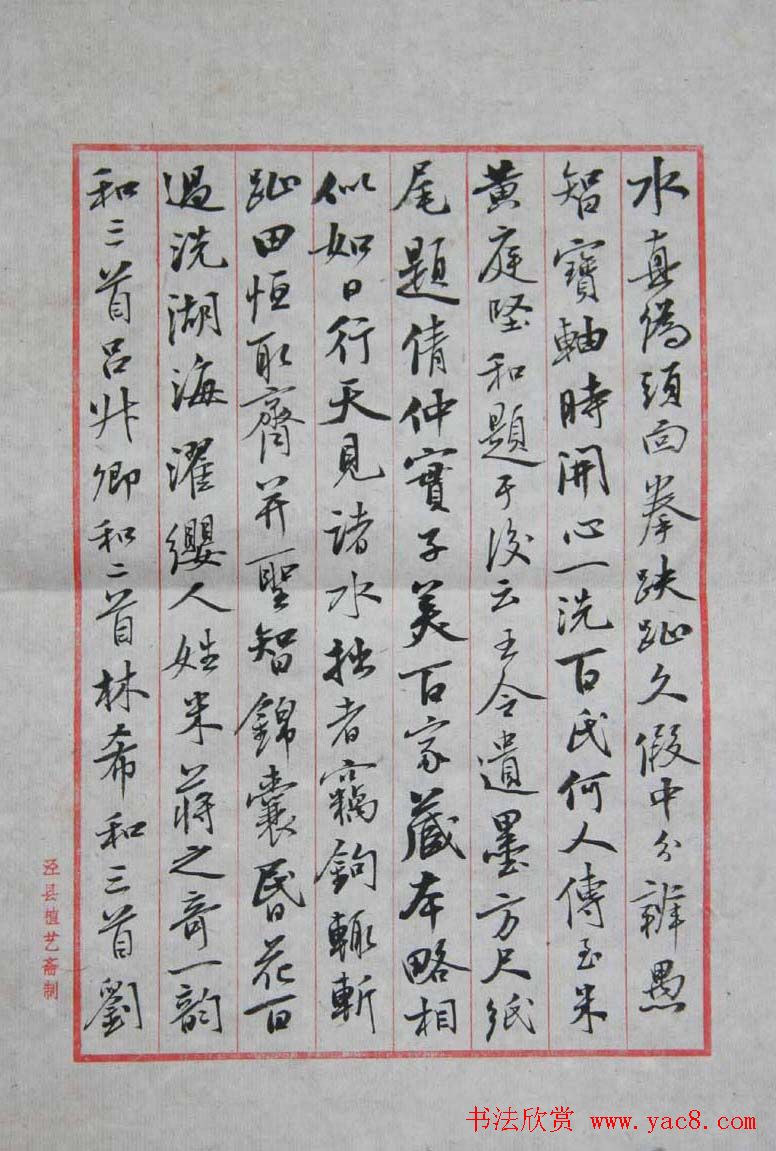 水真偽頭面拳趺趾久假中分辨愚
智寶軸時開心一洗百氏何人傳至米
黄庭堅和題于後云王令遺墨方尺紙
尾題倩仲寶子美百家藏本略相
似如日行天見諸水拙者竊鉤輒斬
趾田恒取齊并聖智錦囊昏花百
過洗湖海濯纓人姓米蔣之奇一韵
和三首呂升卿和二首林希和三首劉
泾县植艺斋制
书法欣赏 www.yac8.com